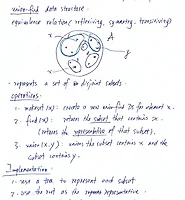 union-find data structure.
equivalence relation (reflexivity, symmetry, transitivity)
x A
x y
- represents a set of disjoint subsets
operations:
1. makeset(x): create a new union-find DS for element x.
2. find(x): return the subset that contains x.
(return the representative of that subset).
3. union(x, y): unions the subset contains x and the
subset contains y.
Implementation
1. use a tree to represent each subset
2. use the root as the representative.